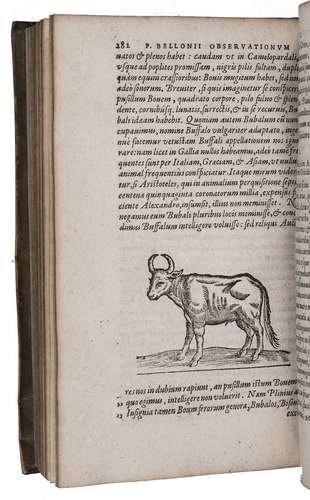 282 P. BELLONII OBSERVATIONVM
nuatos & plenos habet: caudam vt in Camelopardali,
vsque ad poplites promissam, nigris pilis fultam, duplo
quàm equini crassioribus: Bouis mugitum habet, sed non
adeò sonorum. Breuiter, si quis imaginetur se conspicere
pusillum Bouem, quadrato corpore, pilo fuluo & splen-
dente, cornibúsq; lunatis, surrectis, & in se recuruis, Bu-
bali ideam habebit. Quoniam autem Bubalum eũ nun-
cupauimus, nomine Buffalo vulgariter adaptato, inge-
nuè fatemur vetustam Buffali appellationem nos igno-
rare: nam licet in Gallia nullos habeamus, adeò tamẽ fre-
quentes sunt per Italiam, Græciam, & Asiam, vt nullum
animal frequentius conspiciatur. Itaque mirum videre-
tur, si Aristoteles, qui in animalium perquisitione septin-
centena quinquaginta coronatorum millia, expensas
ciente Alexandro, insumsit, illius non meminisset. Non
negamus eum Bubali pluribus locis meminisse, &
dimus Buffalum intelligere voluisse: sed reliqui
res nos in dubium rapiunt, an pusillum istum Bouem
quo egimus, intelligere non voluerit. Nam Plinius
Insignia tamen Boum ferorum genera, Bubalos,